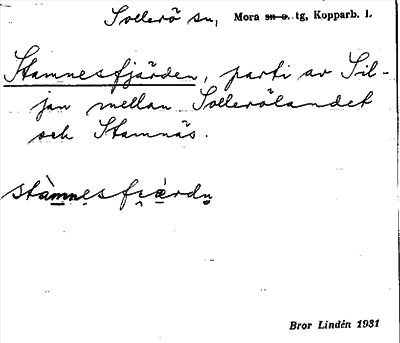 Sollerö sn, Mora sn o. tg, Kopparb. l.
Stamnesfjärden, parti av Sil-
jan mellan Sollerölandet
och Stamnäs.
stàmnesfjæ̀rdn̥
Bror Lindén 1931